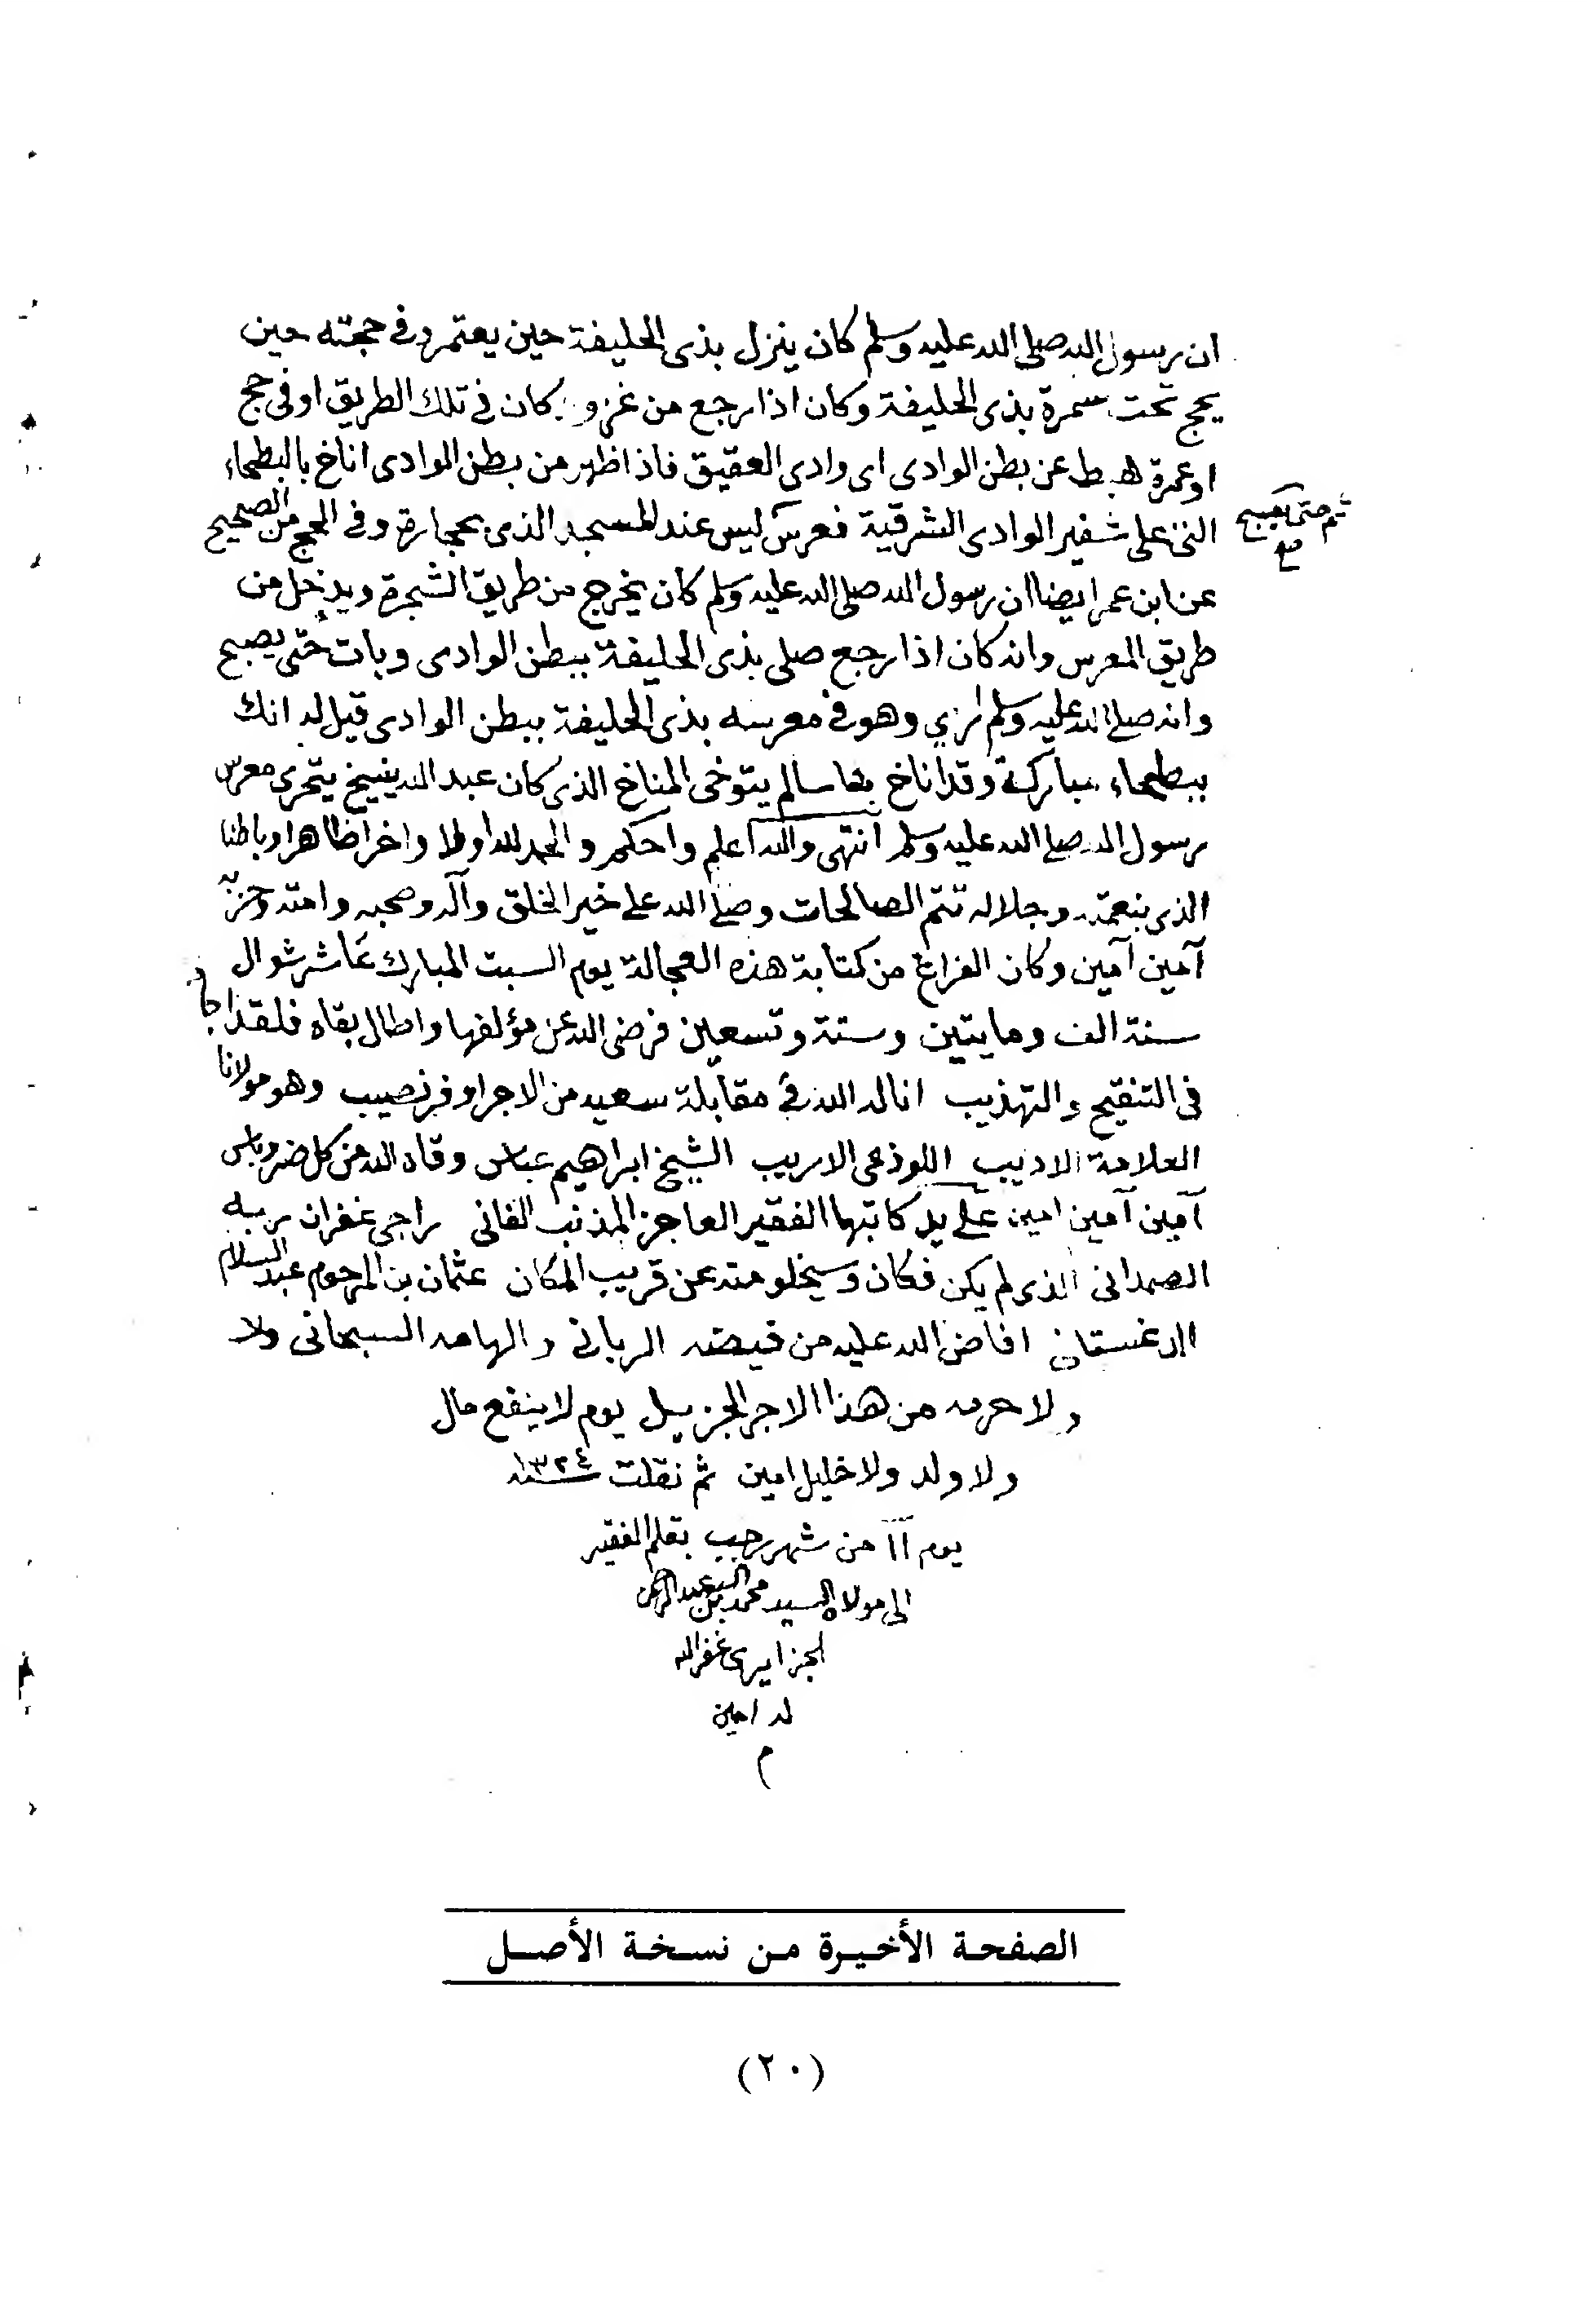 ان رسول الله صلى الله عليه وسلم كان ينزل بذى الحليفة حين يعتمر وفى حجته حين
يحج تحت سمرة بذى الحليفة وكان اذا رجع من غزو كان فى تلك الطريق او فى حج
او عمرة هبط عن بطن الوادى اى وادى العقيق فاذا ظهر من بطن الوادى اناخ بالبطحاء
التى على شفير الوادى الشرقية فعرس ليس عند المسجد الذى بحجارة وفى الحج من الصحيح
ثم حتى يصبح
صح
عن ابن عمر ايضا ان رسول الله صلى الله عليه وسلم كان يخرج من طريق الشجرة ويدخل من
طريق المعرس وانه كان اذا رجع صلى بذى الحليفة ببطن الوادى وبات حتى يصبح
وانه صلى الله عليه وسلم ارى وهو فى معرسه بذى الحليفة ببطن الوادى قيل له انك
ببطحاء مباركة وقد اناخ بها سالم يتوخى المناخ الذى كان عبد الله ينيخ يتحرى معرس
رسول الله صلى الله عليه وسلم انتهى والله اعلم واحكم والحمد لله اولا واخرا ظاهرا وباطنا
الذى بنعمته وجلاله تتم الصالحات وصلى الله على خير الخلق وآله وصحبه وامته وحزبه
آمين آمين وكان الفراغ من كتابة هذه العجالة يوم السبت المبارك عاشر شوال
سنة الف ومايتين وستة وتسعين فرضى الله عن مؤلفها واطال بقاه فلقد اجاد
فى التنقيح والتهذيب اناله الله فى مقابلة سعيه من الاجر اوفر نصيب وهو مولانا
العلامة الاديب اللوذعى الاريب الشيخ ابراهيم عباس وقاه الله من كل ضر وباس
آمين آمين امين على يد كاتبها الفقير العاجز المذنب الفانى راجى غفران ربه
الصمدانى الذى لم يكن فكان وسيخلو منه عن قريب المكان عثمان بن المرحوم عبد السلام
الدغستانى افاض الله عليه من فيضه الربانى والهامه السبحانى ولا
ولا حرمه من هذا الاجر الجزيل يوم لا ينفع مال
ولا ولد ولا خليل امين ثم نقلت سنة ١٣٢٤
يوم ١١ من شهر رجب بقلم الفقير
الى مولاه السيد محمد بن السيد عبد الرحمن
الجزايرى غفر الله
له امين
م
الصفحة الأخيرة من نسخة الأصل
(٢٠)